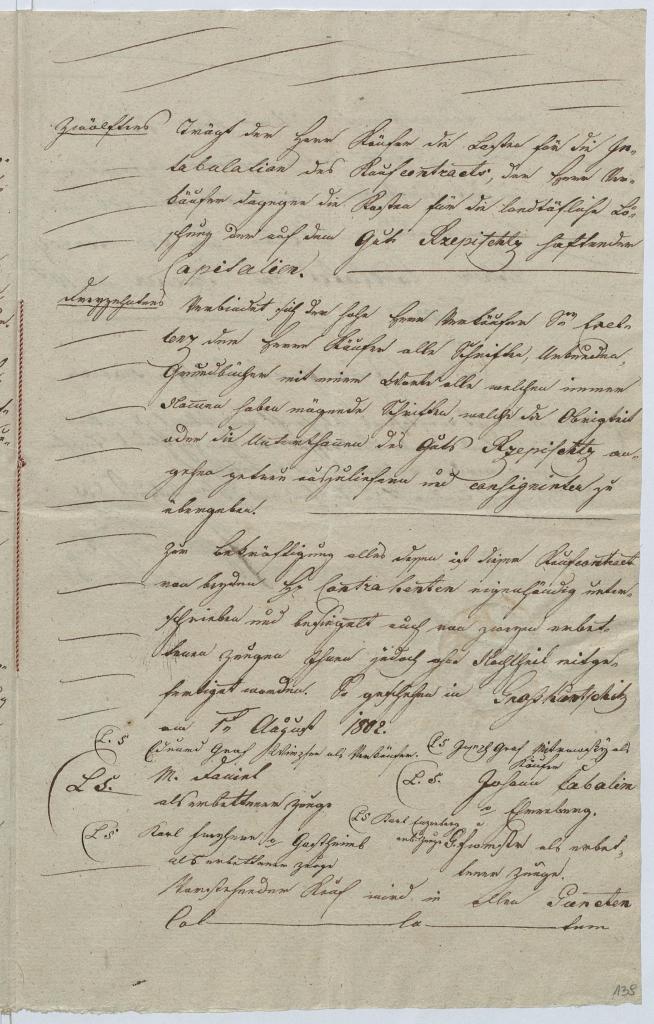 Zwölftens Trägt der Herr Käufer die Kosten für die In-
tabulation des Kaufcontracts, der Herr Ver-
käufer dagegen die Kosten für die landtäfliche Lö-
schung der auf dem Guts Rzepischtz haftenden
Capitalien.
Dreyzehntens Verbindet sich der hohe Herr Verkäufer Se Excel-
lenz dem Herrn Käufer alle Schriften, Urkunden,
Grundbücher mit einem Worte alle welchen immer
Nammen haben mögende Schriften, welche die Obrigkeit
oder die Unterthannen des Guts Rzepischtz an-
gehen getreu auszuliefern und consignirter zu
übergeben.
Zur Bekräftigung alles dessen ist dieser Kaufcontract
von beyden H Contrahenten eigenhändig unter-
schrieben und besiegelt auch von zweyen erbet-
tenen Zeugen Ihnen jedoch ohne Nachtheil mitge-
fertiget worden. So geschehen in Groß
am 1ten August 1802.
L. S. Edmund Graf als Verkäufer. LS Joseph Graf Mitrowsky als
Käufer
L S. M. Daniel L. S. Johann Cabalin
als erbettener Zeuge v Ehrenberg.
L S. Karl Freyherr v Gastheimb LS Karl
als erbettener Zeuge als erbet-
tener Zeuge.
Vorstehender Kauf wird in allen Puncten
Col la tum
A39